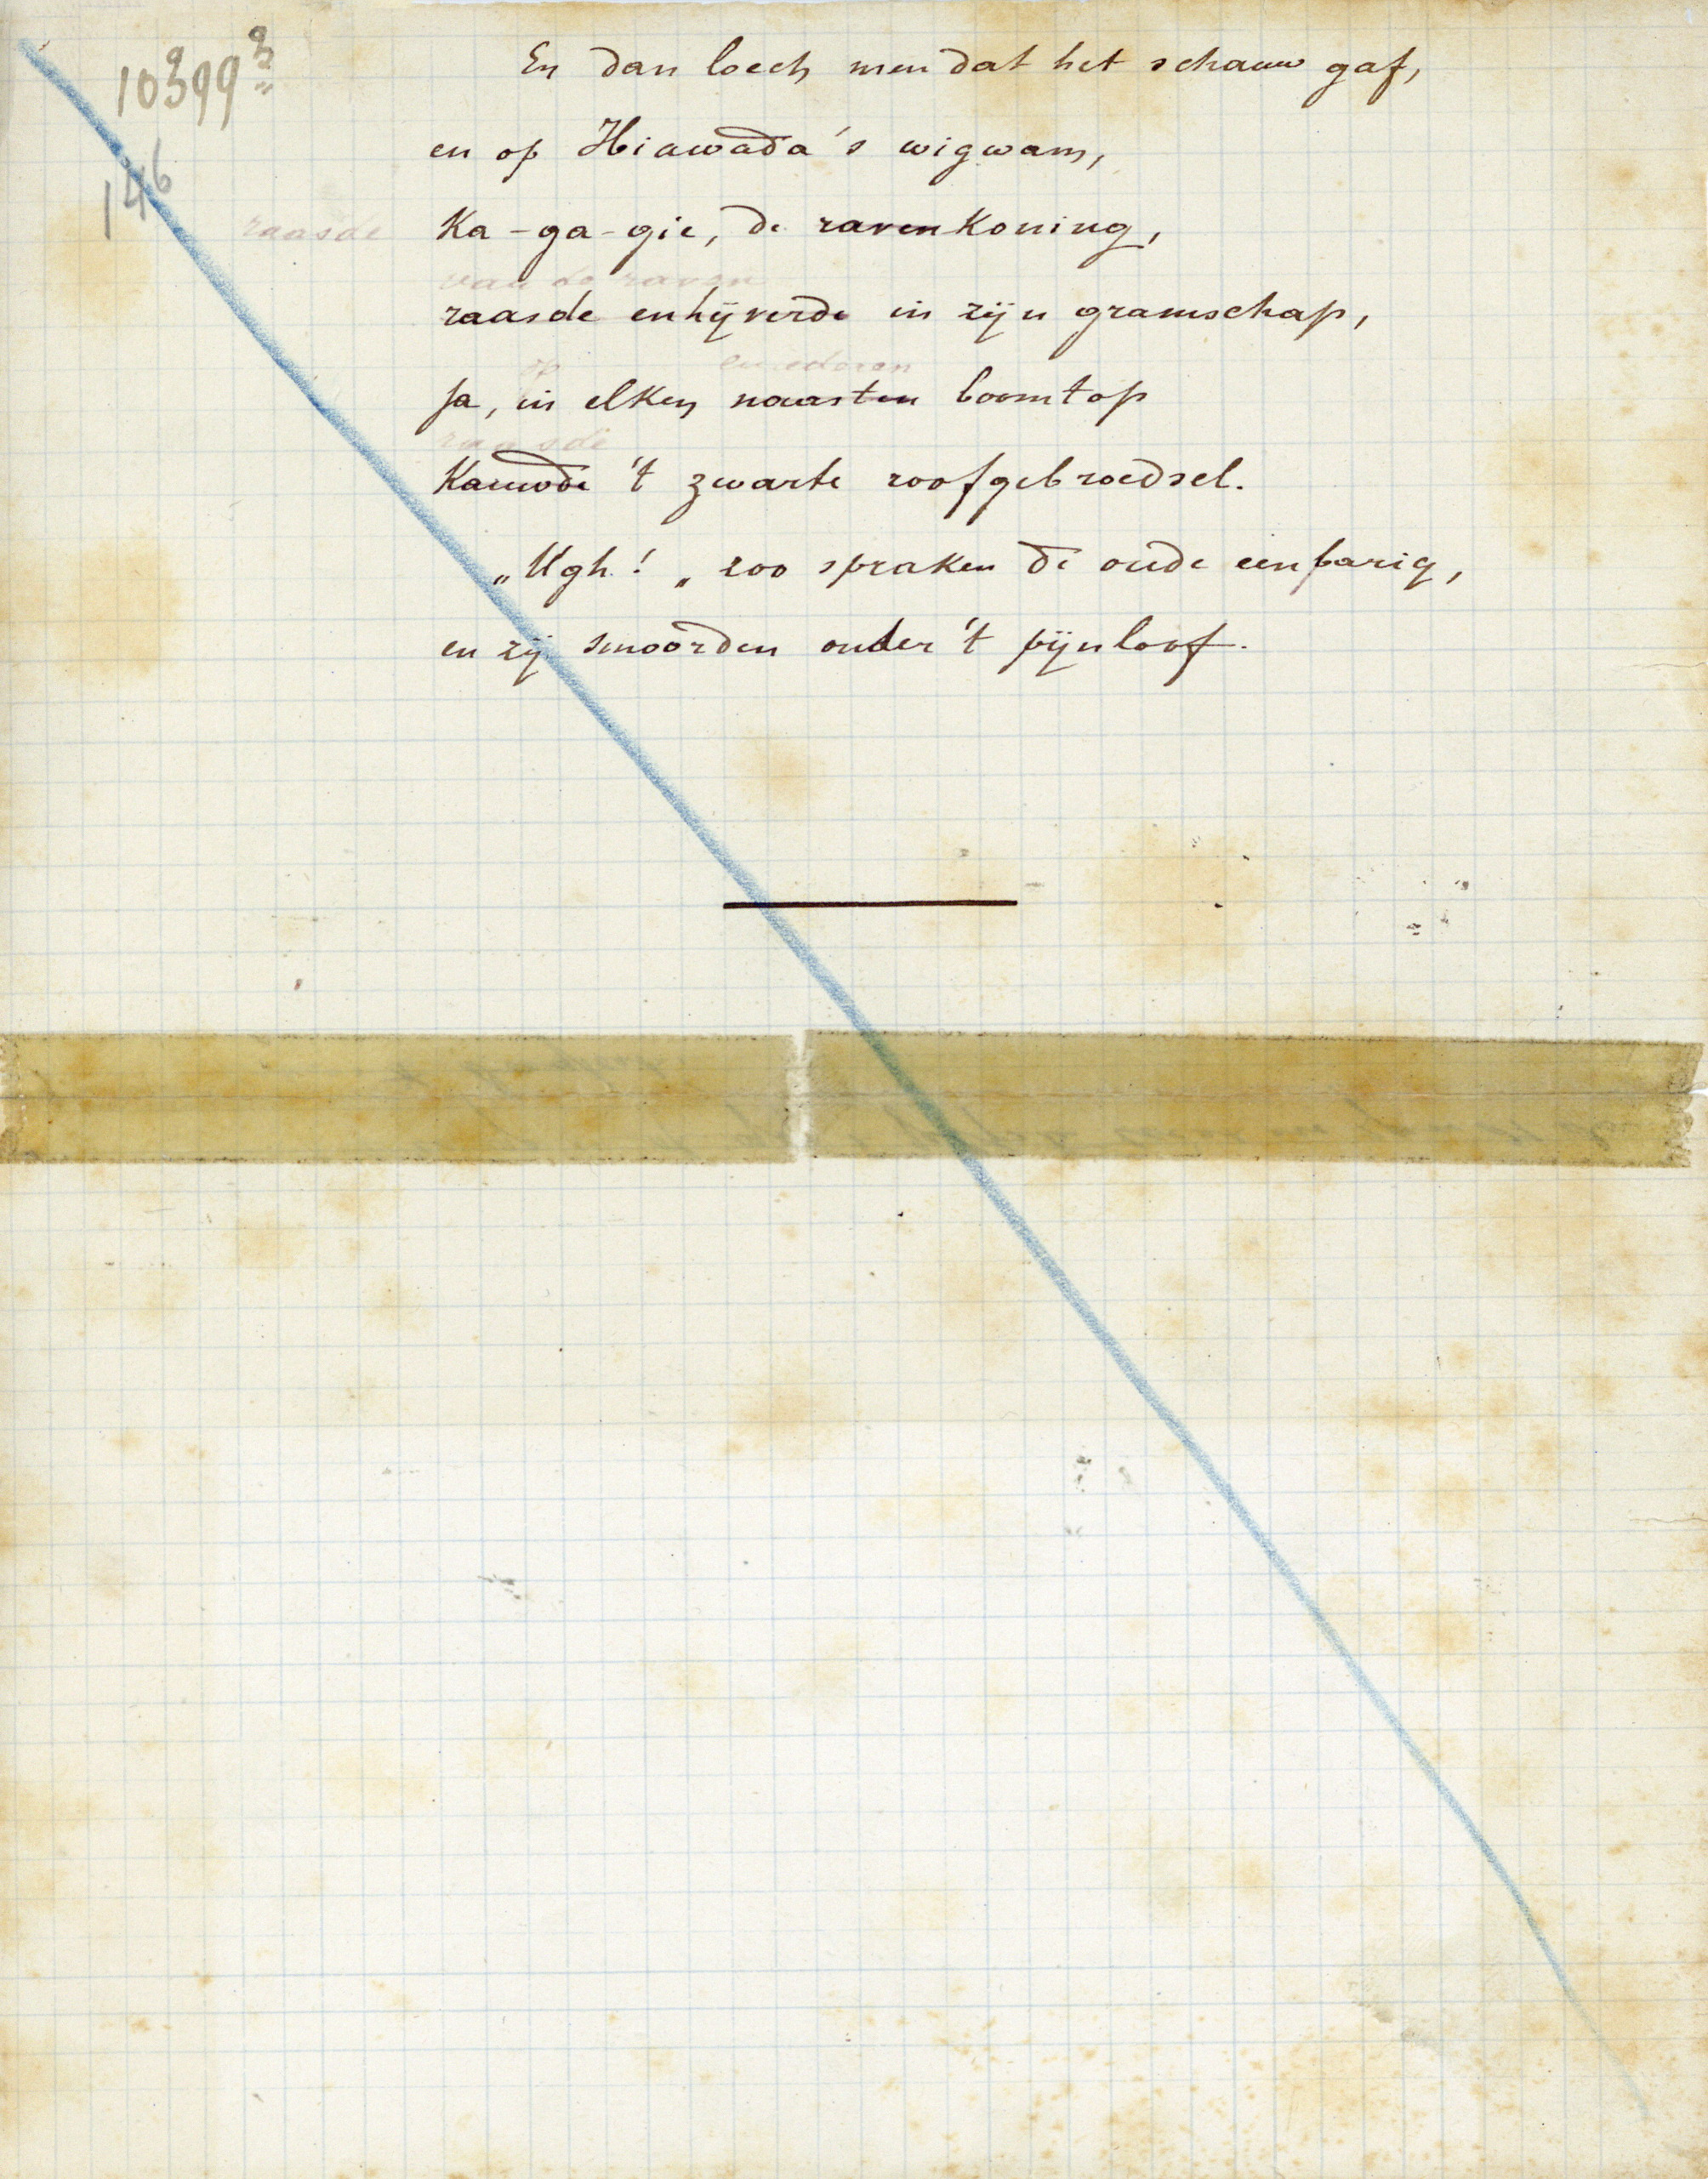 10399³
146
En dan loech men dat het schauw gaf,
en op Hiawada's wigwam,
raasde Ka-ga-gie, de ravenkoning,
van de raven
raasde en hijverde in zijn gramschap,
op
Ja, in elken naasten boomtop
raasde
Kauwde 't zwarte roofgebroedsel.
„Ugh! „ zoo spraken de oude eenparig,
en zij smoorden onder 't pijnloof.